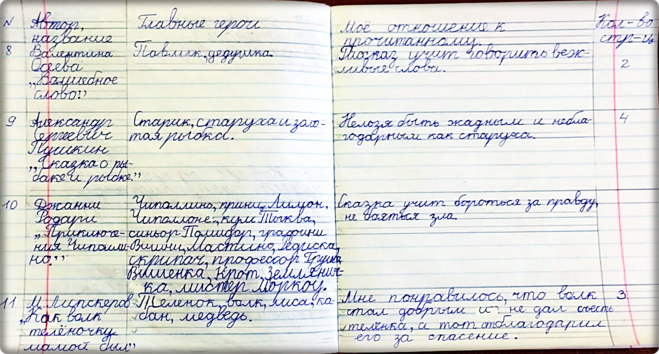 N
Автор,
название
Главные герои
Моё отношение к
прочитанному.
Кол-во
стр-ц
8
Валентина
Осеева
„Валшебное
слово"
Павлик, дедушка.
Расказ учит говорить веж-
ливые слова.
2
9
Александр
Сергеевич
Пушкин
„Сказка о ры-
баке и рыбке"
Старик, старуха и золо-
тая рыбка.
Нельзя быть жадным и небла-
годарным как старуха.
4
10
Джанни
Родари
„Приключе-
ния Чиполли-
но."
Чиполлино, принц Лимон,
Чиполлоне, кум Тыква,
синьор Помидор, графини
Вишни, Мастино, Редиска,
скрипач, профессор Груша
Вишенка, Крот, Земляни-
ка, мистер Моркоу.
Сказка учит бороться за правду,
не бояться зла.
11
М. Липскеров
„Как волк
телёночку
мамой был"
Теленок, волк, лиса, ка-
бан, медведь.
Мне понравилось, что волк
стал добрым и не дал съесть
телёнка, а тот отблагодарил
его за спасение.
3